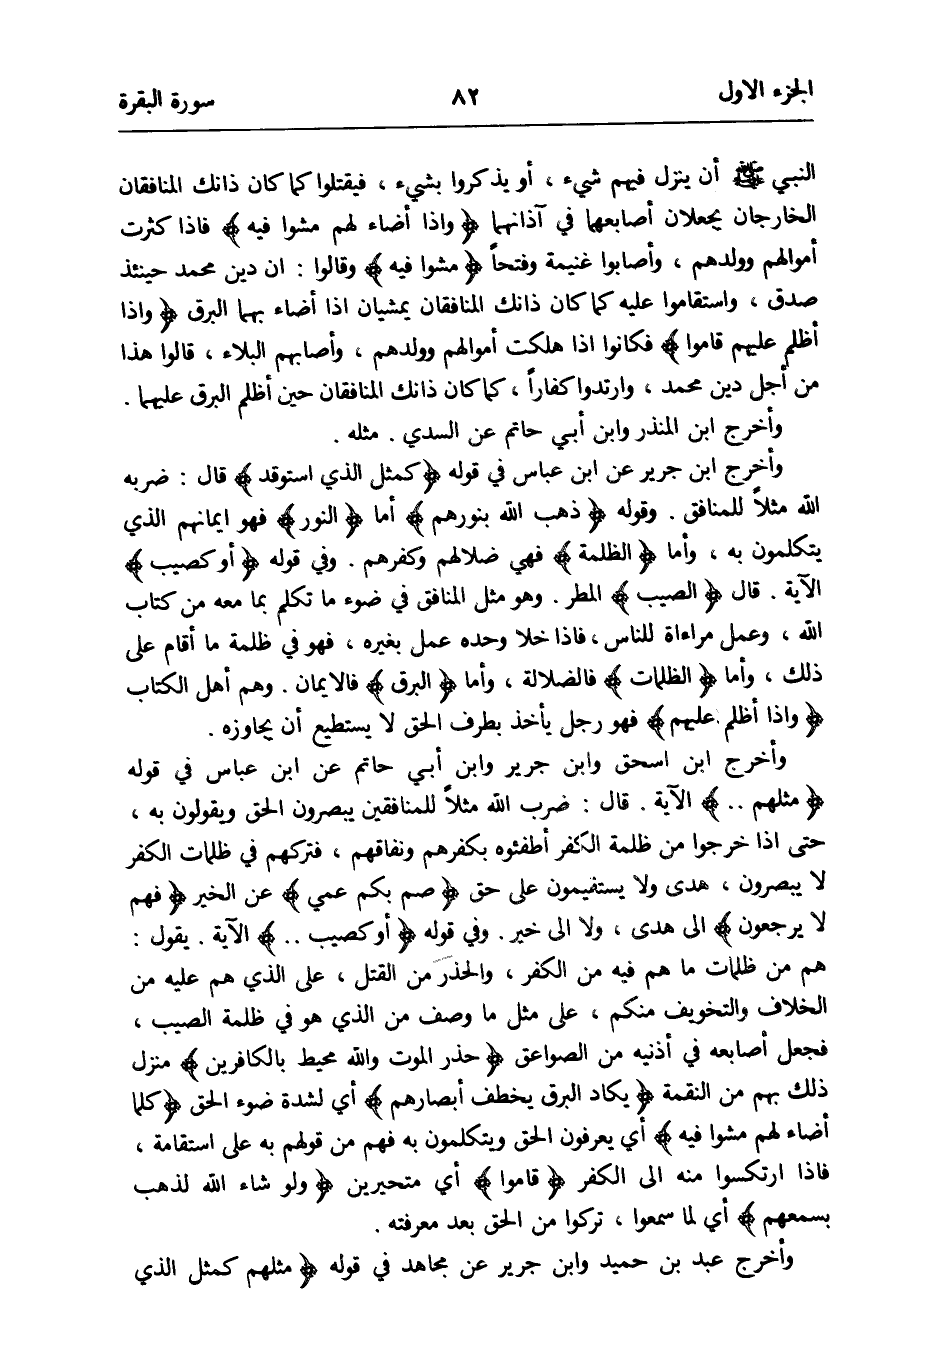 الجزء الاول ٨٢ سورة البقرة
النبي ﷺ أن ينزل فيهم شيء ، أو يذكروا بشيء ، فيقتلوا كما كان ذانك المنافقان
الخارجان يجعلان أصابعهما في آذانهما ﴿ واذا أضاء لهم مشوا فيه ﴾ فاذا كثرت
أموالهم وولدهم ، وأصابوا غنيمة وفتحاً ﴿ مشوا فيه ﴾ وقالوا : ان دين محمد حينئذ
صدق ، واستقاموا عليه كما كان ذانك المنافقان يمشيان اذا أضاء بهما البرق ﴿ واذا
أظلم عليهم قاموا ﴾ فكانوا اذا هلكت أموالهم وولدهم ، وأصابهم البلاء ، قالوا هذا
من أجل دين محمد ، وارتدوا كفاراً ، كما كان ذانك المنافقان حين أظلم البرق عليهما .
وأخرج ابن المنذر وابن أبي حاتم عن السدي . مثله .
وأخرج ابن جرير عن ابن عباس في قوله ﴿ كمثل الذي استوقد ﴾ قال : ضربه
الله مثلاً للمنافق . وقوله ﴿ ذهب الله بنورهم ﴾ أما ﴿ النور ﴾ فهو ايمانهم الذي
يتكلمون به ، وأما ﴿ الظلمة ﴾ فهي ضلالهم وكفرهم . وفي قوله ﴿ أو كصيب ﴾
الآية . قال ﴿ الصيب ﴾ المطر . وهو مثل المنافق في ضوء ما تكلم بما معه من كتاب
الله ، وعمل مراءاة للناس ، فاذا خلا وحده عمل بغيره ، فهو في ظلمة ما أقام على
ذلك ، وأما ﴿ الظلمات ﴾ فالضلالة ، وأما ﴿ البرق ﴾ فالايمان . وهم أهل الكتاب
﴿ واذا أظلم عليهم ﴾ فهو رجل يأخذ بطرف الحق لا يستطيع أن يجاوزه .
وأخرج ابن اسحق وابن جرير وابن أبي حاتم عن ابن عباس في قوله
﴿ مثلهم .. ﴾ الآية . قال : ضرب الله مثلاً للمنافقين يبصرون الحق ويقولون به ،
حتى اذا خرجوا من ظلمة الكفر أطفئوه بكفرهم ونفاقهم ، فتركهم في ظلمات الكفر
لا يبصرون ، هدى ولا يستفيمون على حق ﴿ صم بكم عمي ﴾ عن الخير ﴿ فهم
لا يرجعون ﴾ الى هدى ، ولا الى خير . وفي قوله ﴿ أو كصيب .. ﴾ الآية . يقول :
هم من ظلمات ما هم فيه من الكفر ، والحذر من القتل ، على الذي هم عليه من
الخلاف والتخويف منكم ، على مثل ما وصف من الذي هو في ظلمة الصيب ،
فجعل أصابعه في أذنيه من الصواعق ﴿ حذر الموت والله محيط بالكافرين ﴾ منزل
ذلك بهم من النقمة ﴿ يكاد البرق يخطف أبصارهم ﴾ أي لشدة ضوء الحق ﴿ كلما
أضاء لهم مشوا فيه ﴾ أي يعرفون الحق ويتكلمون به فهم من قولهم به على استقامة ،
فاذا ارتكسوا منه الى الكفر ﴿ قاموا ﴾ أي متحيرين ﴿ ولو شاء الله لذهب
بسمعهم ﴾ أي لما سمعوا ، تركوا من الحق بعد معرفته .
وأخرج عبد بن حميد وابن جرير عن مجاهد في قوله ﴿ مثلهم كمثل الذي